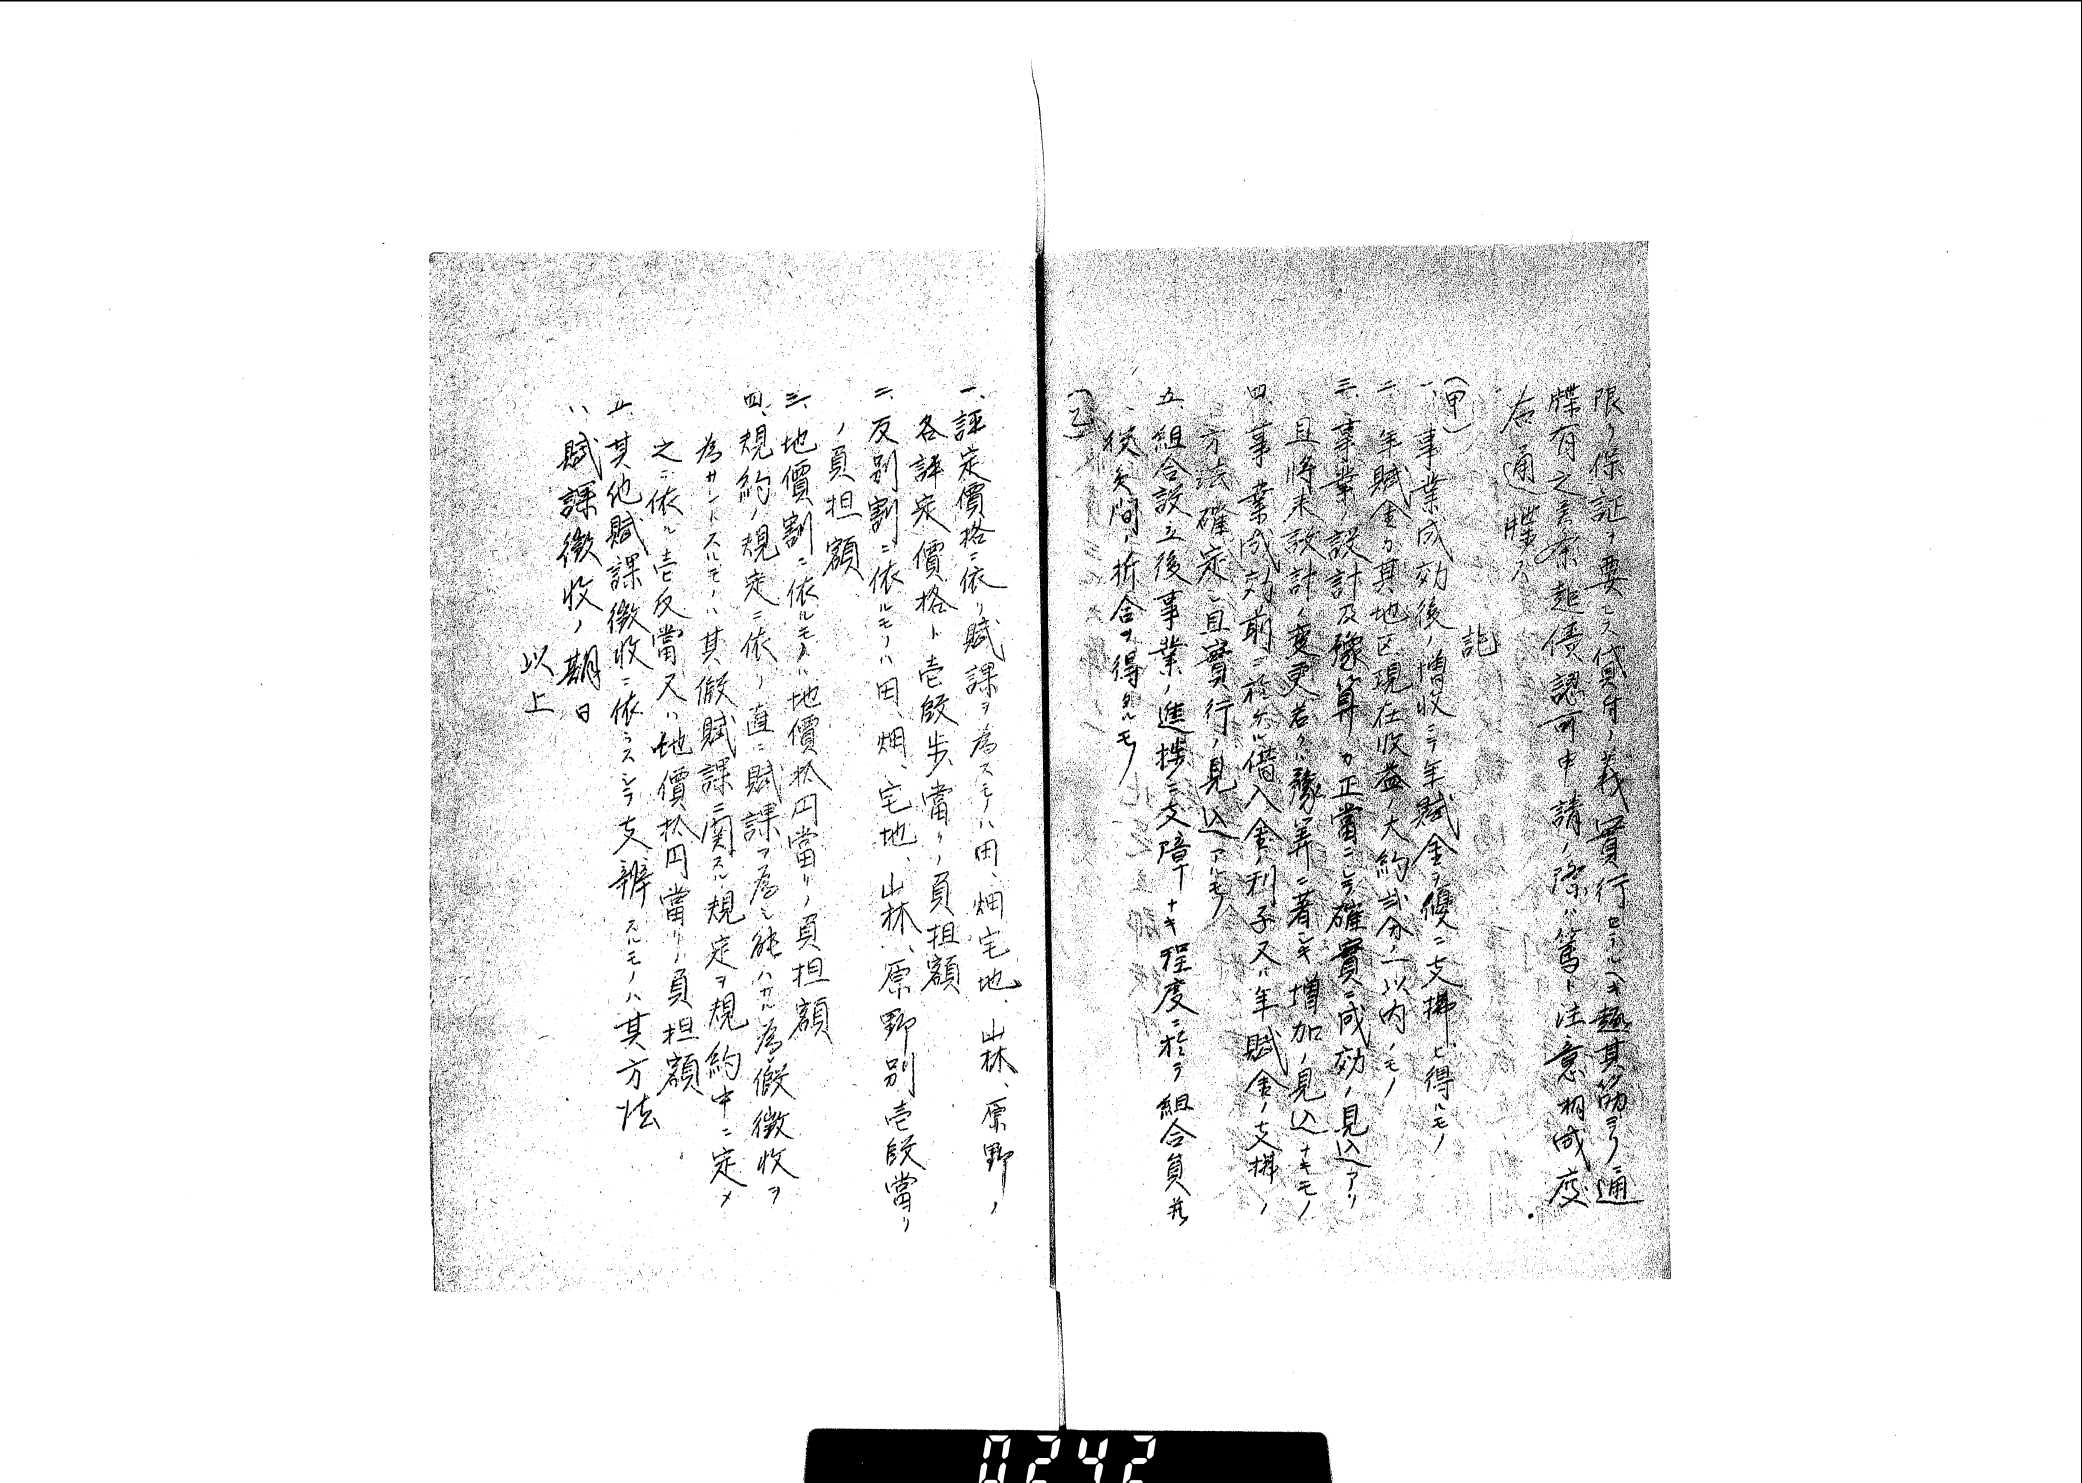 限リ保証ヲ要セス貸付ノ義實行セラルヘキ趣其筋ヨリ通
牒有之候條起債認可申請ノ際ハ篤ト注意相成度
右通牒ス
記
(甲)
一、事業成効後ノ増收ニテ年賦金ヲ優ニ支拂ヒ得ルモノ
二、年賦金カ其地区現在收益ノ大約貳分ノ一以内ノモノ
三、事業ノ設計及豫算カ正當ニシテ確實ニ成効ノ見込アリ
且將来設計ノ変更若クハ豫算ニ著シキ増加ノ見込ナキモノ
四、事業成効前ニ於ケル借入金ノ利子又ハ年賦金ノ支拂ノ
方法確定シ且實行ノ見込アルモノ
五、組合設立後事業ノ進捗ニ支障ナキ程度ニ於テ組合員并
役員間ノ折合ヲ得タルモノ
(乙)
一、評定價格ニ依リ賦課ヲ為スモノハ田、畑宅地、山林、原野ノ
各評定價格ト壱段歩當リノ負担額
二、反別割ニ依ルモノハ田、畑、宅地、山林、原野別壱段當リ
ノ負担額
三、地價割ニ依ルモノハ地價拾円當リノ負担額
四、規約ノ規定ニ依リ直ニ賦課ヲ為シ能ハサル為メ假徴收ヲ
為サントスルモノハ其假賦課ニ関スル規定ヲ規約中ニ定メ
之ニ依ル壱反當又ハ地價拾円當リノ負担額
五、其他賦課徴收ニ依ラスシテ支辨スルモノハ其方法
六、賦課徴收ノ期日
以上
0242